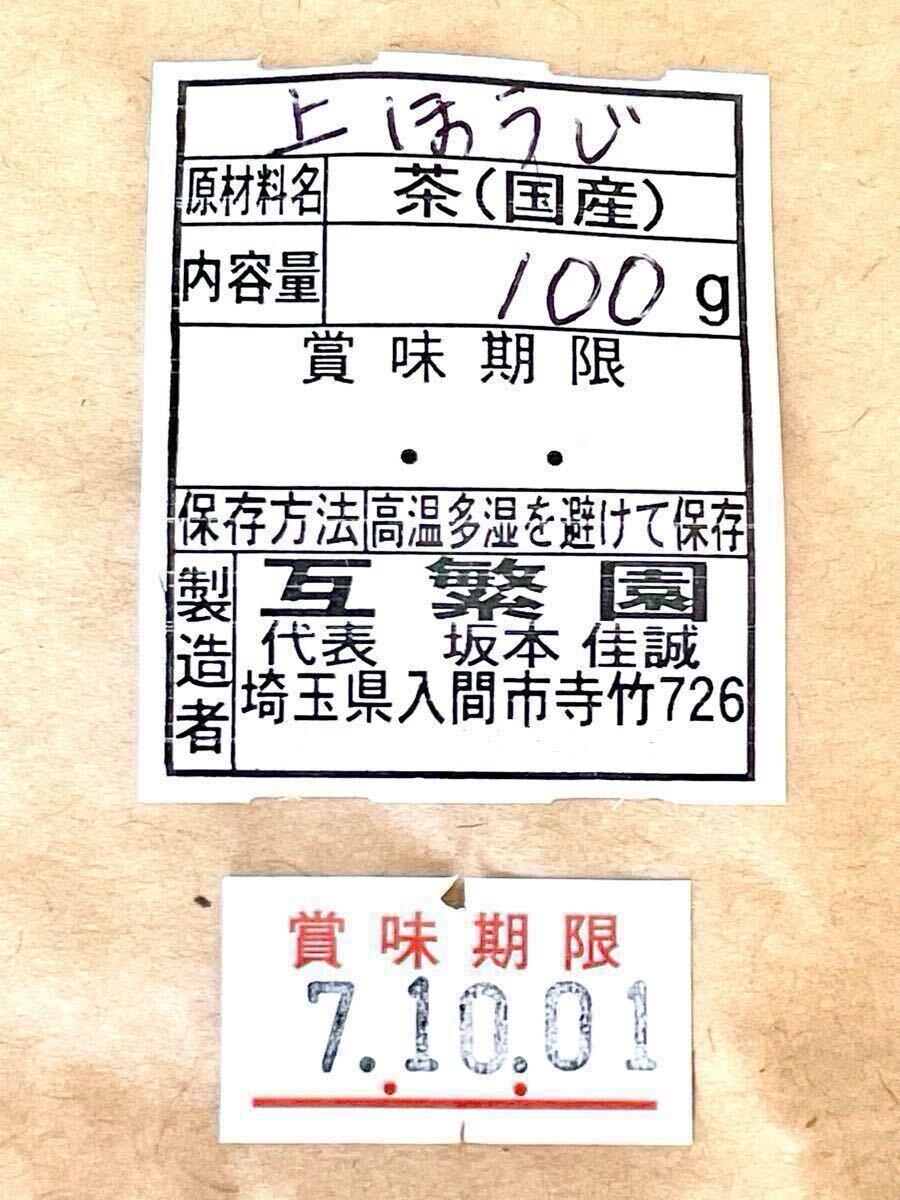 上ほうじ
原材料名 茶(国産)
内容量 100 g
賞味期限
保存方法 高温多湿を避けて保存
製造者 互繁園
代表 坂本 佳誠
埼玉県入間市寺竹726
賞味期限
7.10.01